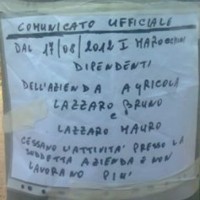 COMUNICATO UFFICIALE
DAL 17/08/2012 I MAROCCHINI
DIPENDENTI
DELL'AZIENDA AGRICOLA
LAZZARO BRUNO
e
LAZZARO MAURO
CESSANO L'ATTIVITA' PRESSO LA
SUDDETTA AZIENDA E NON
LAVORANO PIU'